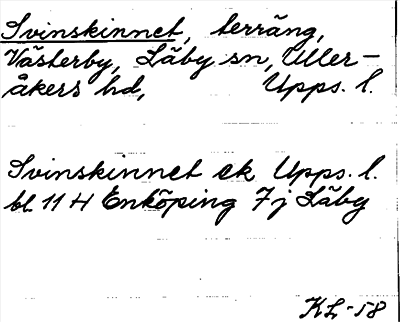 Svinskinnet, terräng,
Västerby, Läby sn, Uller-
åkers hd, Upps. l.
Svinskinnet ek Upps. l.
bl. 11 H Enköping 7j Läby
KL-58